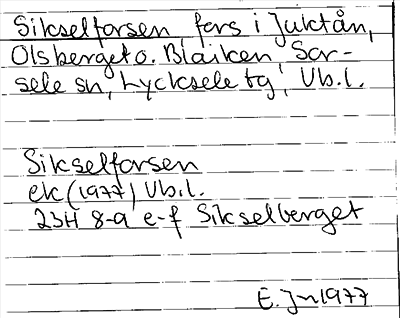 Sikselforsen, fors i Juktån,
Olsberget o. Blaiken, Sor-
sele sn, Lycksele tg, Vb.l.
Sikselforsen
ek (1977) Vb.l.
23H 8-9 e-f Sikselberget
E. Jn 1977